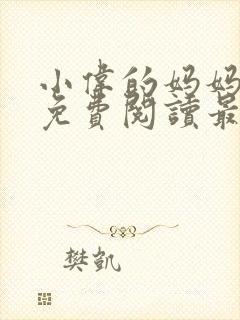 小偉的妈妈
免費閱讀最
樊凱